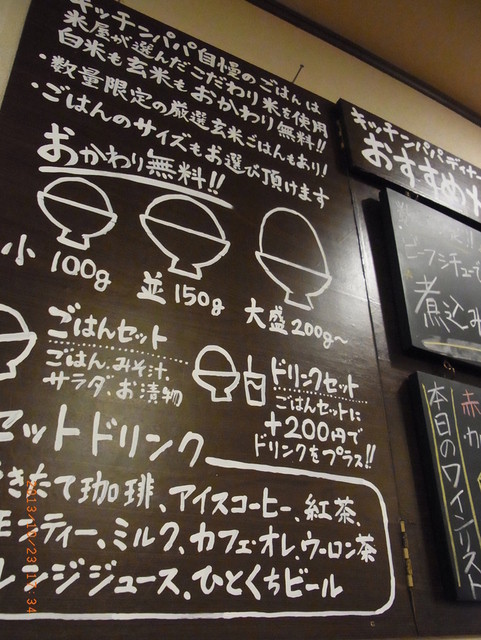 キッチンパパ自慢のごはんは
米屋が選んだこだわり米を使用
白米も玄米もおかわり無料!!
・数量限定の厳選玄米ごはんもあり!
・ごはんのサイズもお選び頂けます
おかわり無料!!
小 100g
並 150g
大盛 200g~
ごはんセット
ごはん、みそ汁、
サラダ、お漬物
ドリンクセット
ごはんセットに
+200円で
ドリンクをプラス!!
セットドリンク
きたて珈琲、アイスコーヒー、紅茶、
モンティー、ミルク、カフェ・オレ、ウーロン茶
レンジジュース、ひとくちビール
キッチンパパディナー
おすすめ
ビーフシチュー
煮込み
本日のワインリスト